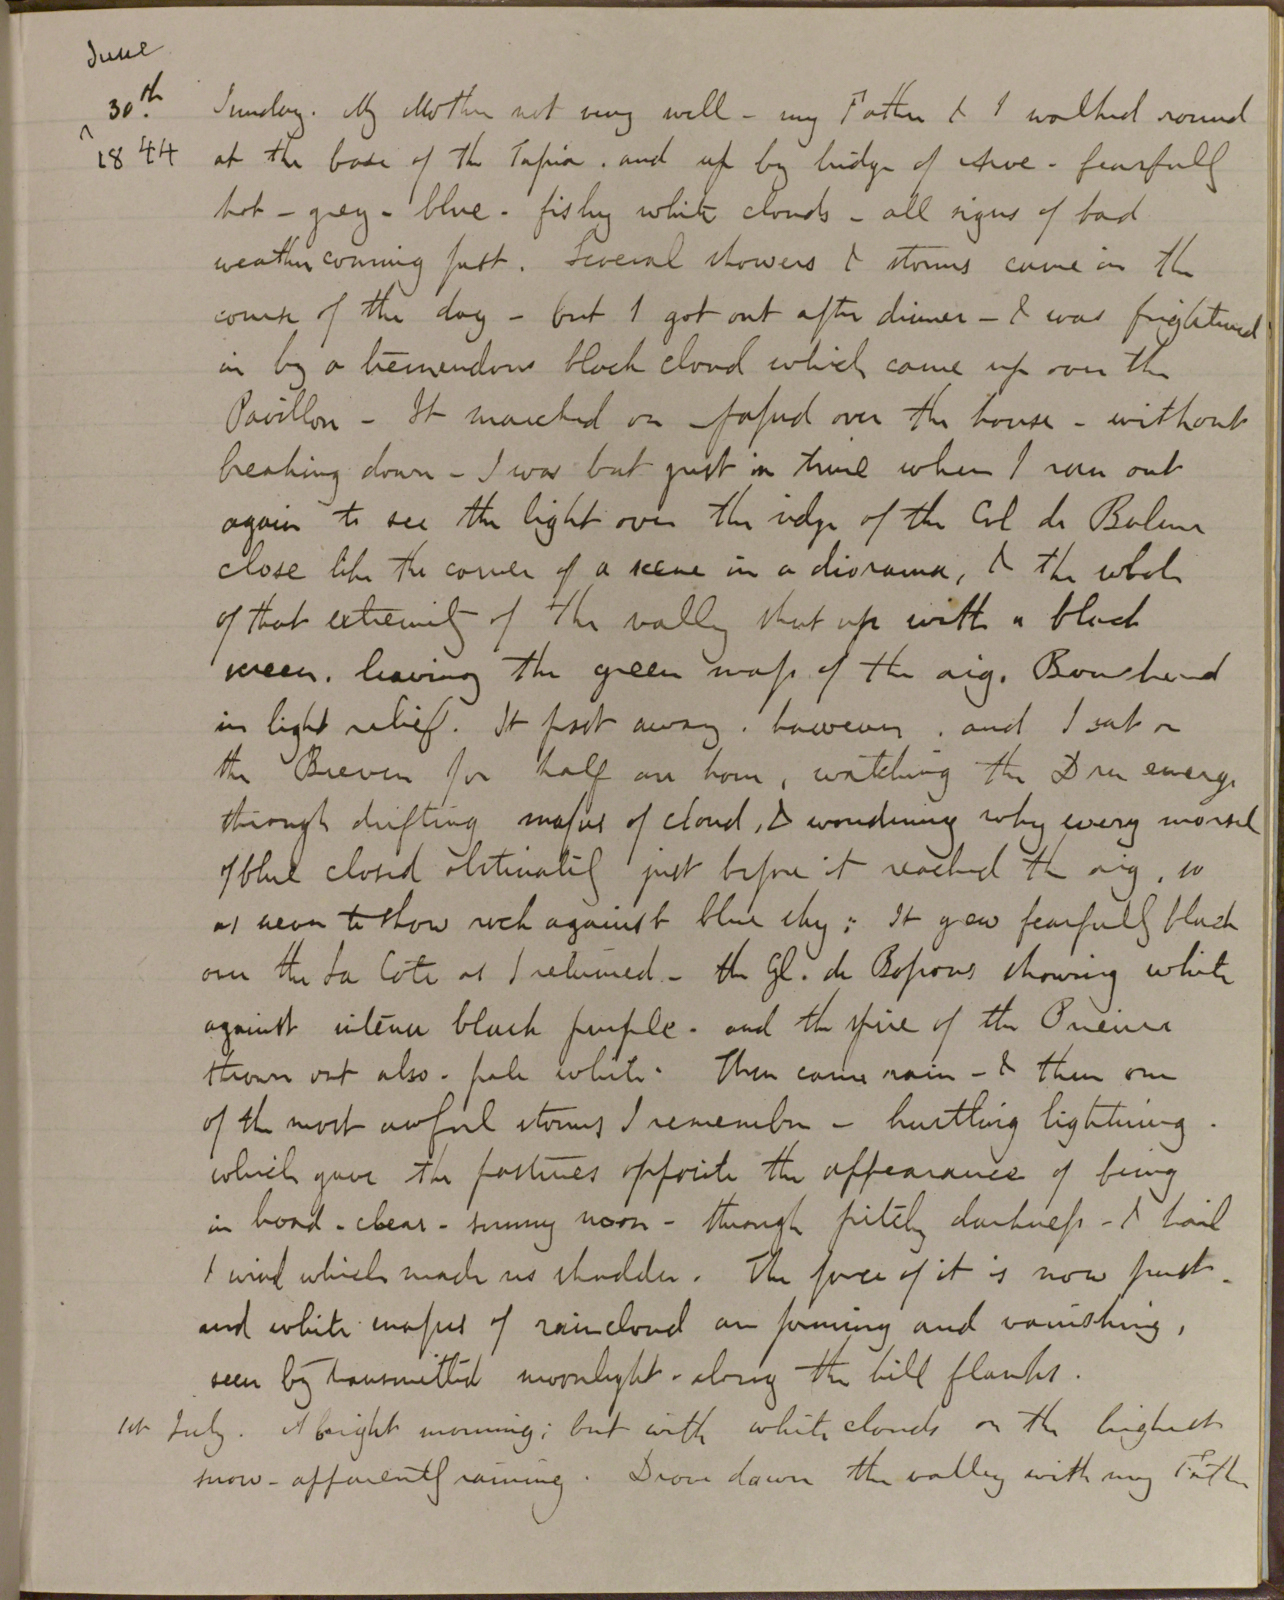 June
30th. Sunday. My Mother not very well - my Father & I walked round
1844 at the base of the Tapia. and up by bridge of Arve - fearfully
hot - grey - blue - fishy white clouds - all signs of bad
weather coming fast. Several showers & storms came in the
course of the day - but I got out after dinner - & was frightened
in by a tremendous black cloud which came up over the
Pavillon - It marched on - passed over the house - without
breaking down - I was but just in time when I ran out
again to see the light over the ridge of the Col de Balme
close like the corner of a scene in a diorama, & the whole
of that extremity of the valley shut up with a black
screen. leaving the green mass of the aig. Bouchard
in light relief. It past away. however. and I sat on
the Breven for half an hour, watching the Dru emerge
through drifting masses of cloud, & wondering why every morsel
of blue closed obstinately just before it reached the aig, so
as never to show rock against blue sky; It grew fearfully black
over the La Côte as I returned - the Gl. de Bossons showing white
against intense black purple. and the spire of the Prieure
thrown out also - pale white. Then came rain - & then one
of the most awful storms I remember - hurtling lightning.
which gave the pastures opposite the appearance of being
in broad - clear - sunny noon - through pitchy darkness - & hail
& wind which made us shudder. The force of it is now past -
and white masses of raincloud are forming and vanishing,
seen by transmitted moonlight - along the hill flanks.
1st July. A bright morning; but with white clouds on the highest
snow - apparently raining. Drove down the valley with my Father